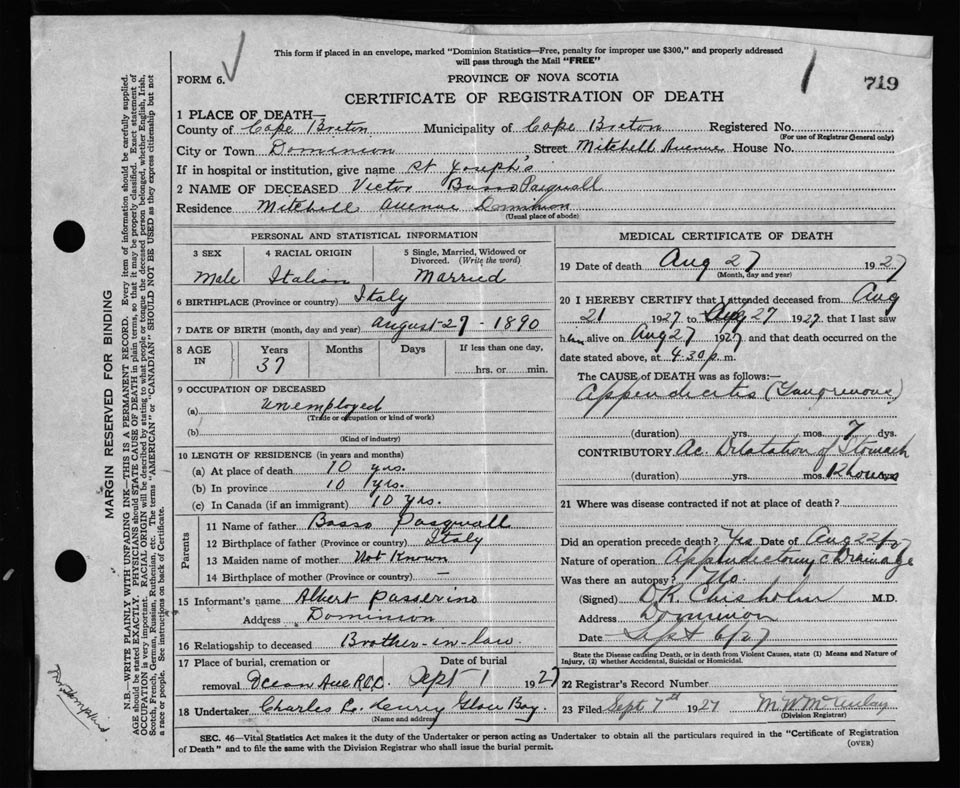 This form if placed in an envelope, marked "Dominion Statistics—Free, penalty for improper use $300," and properly addressed
will pass through the Mail "FREE"
FORM 6.
PROVINCE OF NOVA SCOTIA
1 719
CERTIFICATE OF REGISTRATION OF DEATH
1 PLACE OF DEATH—
County of Cape Breton Municipality of Cape Breton Registered No.
(For use of Registrar General only)
City or Town Dominion Street Mitchell Avenue House No.
If in hospital or institution, give name St Joseph's
2 NAME OF DECEASED Victor Basso Pasquall
Residence Mitchell Avenue Dominion
(Usual place of abode)
PERSONAL AND STATISTICAL INFORMATION
3 SEX 4 RACIAL ORIGIN 5 Single, Married, Widowed or
Divorced. (Write the word)
Male Italian Married
6 BIRTHPLACE (Province or country) Italy
7 DATE OF BIRTH (month, day and year) August-27-1890
8 AGE IN Years Months Days If less than one day,
37 hrs. or min.
9 OCCUPATION OF DECEASED
(a) Unemployed
(Trade or occupation or kind of work)
(b)
(Kind of industry)
10 LENGTH OF RESIDENCE (in years and months)
(a) At place of death 10 yrs.
(b) In province 10 yrs.
(c) In Canada (if an immigrant) 10 yrs.
Parents
11 Name of father Basso Pasquall
12 Birthplace of father (Province or country) Italy
13 Maiden name of mother Not Known
14 Birthplace of mother (Province or country) —
15 Informant's name Albert Passerino
Address Dominion
16 Relationship to deceased Brother-in-law.
17 Place of burial, cremation or Date of burial
removal Ocean Ave R.C.C. Sept 1 1927
18 Undertaker Charles Co. Henry Glace Bay
(Name and address)
MEDICAL CERTIFICATE OF DEATH
19 Date of death Aug 27 1927
(Month, day and year)
20 I HEREBY CERTIFY that I attended deceased from Aug
21 1927 to Aug 27 1927 that I last saw
him alive on Aug 27 1927 and that death occurred on the
date stated above, at 4.30 p. m.
The CAUSE OF DEATH was as follows:—
Appendicitis (Gangrenous)
(duration) yrs. mos. 7 dys.
CONTRIBUTORY Ac. Dilatation of Stomach
(duration) yrs. mos. 12 hours
21 Where was disease contracted if not at place of death?
Did an operation precede death? Yes Date of Aug 22/27
Nature of operation Appendectomy c Drainage
Was there an autopsy? No.
(Signed) D.K. Chisholm M.D.
Address Dominion
Date Sept 6/27
State the Disease causing Death, or in death from Violent Causes, state (1) Means and Nature of
Injury, (2) whether Accidental, Suicidal or Homicidal.
22 Registrar's Record Number
23 Filed Sept 7th 1927 M W McAulay
(Division Registrar)
SEC. 46—Vital Statistics Act makes it the duty of the Undertaker or person acting as Undertaker to obtain all the particulars required in the "Certificate of Registration
of Death" and to file the same with the Division Registrar who shall issue the burial permit.
(OVER)
MARGIN RESERVED FOR BINDING
N.B.—WRITE PLAINLY WITH UNFADING INK—THIS IS A PERMANENT RECORD. Every item of information should be carefully supplied.
AGE should be stated EXACTLY. PHYSICIANS should STATE CAUSE OF DEATH in plain terms, so that it may be properly classified. Exact statement of
OCCUPATION is very important. RACIAL ORIGIN will be described by stating to what people or tongue the deceased person belonged, whether English, Irish,
Scotch, French, German, Russian, Ruthenian, etc. The terms "AMERICAN" or "CANADIAN" SHOULD NOT BE USED as they express citizenship but not
a race or people. See instructions on back of Certificate.